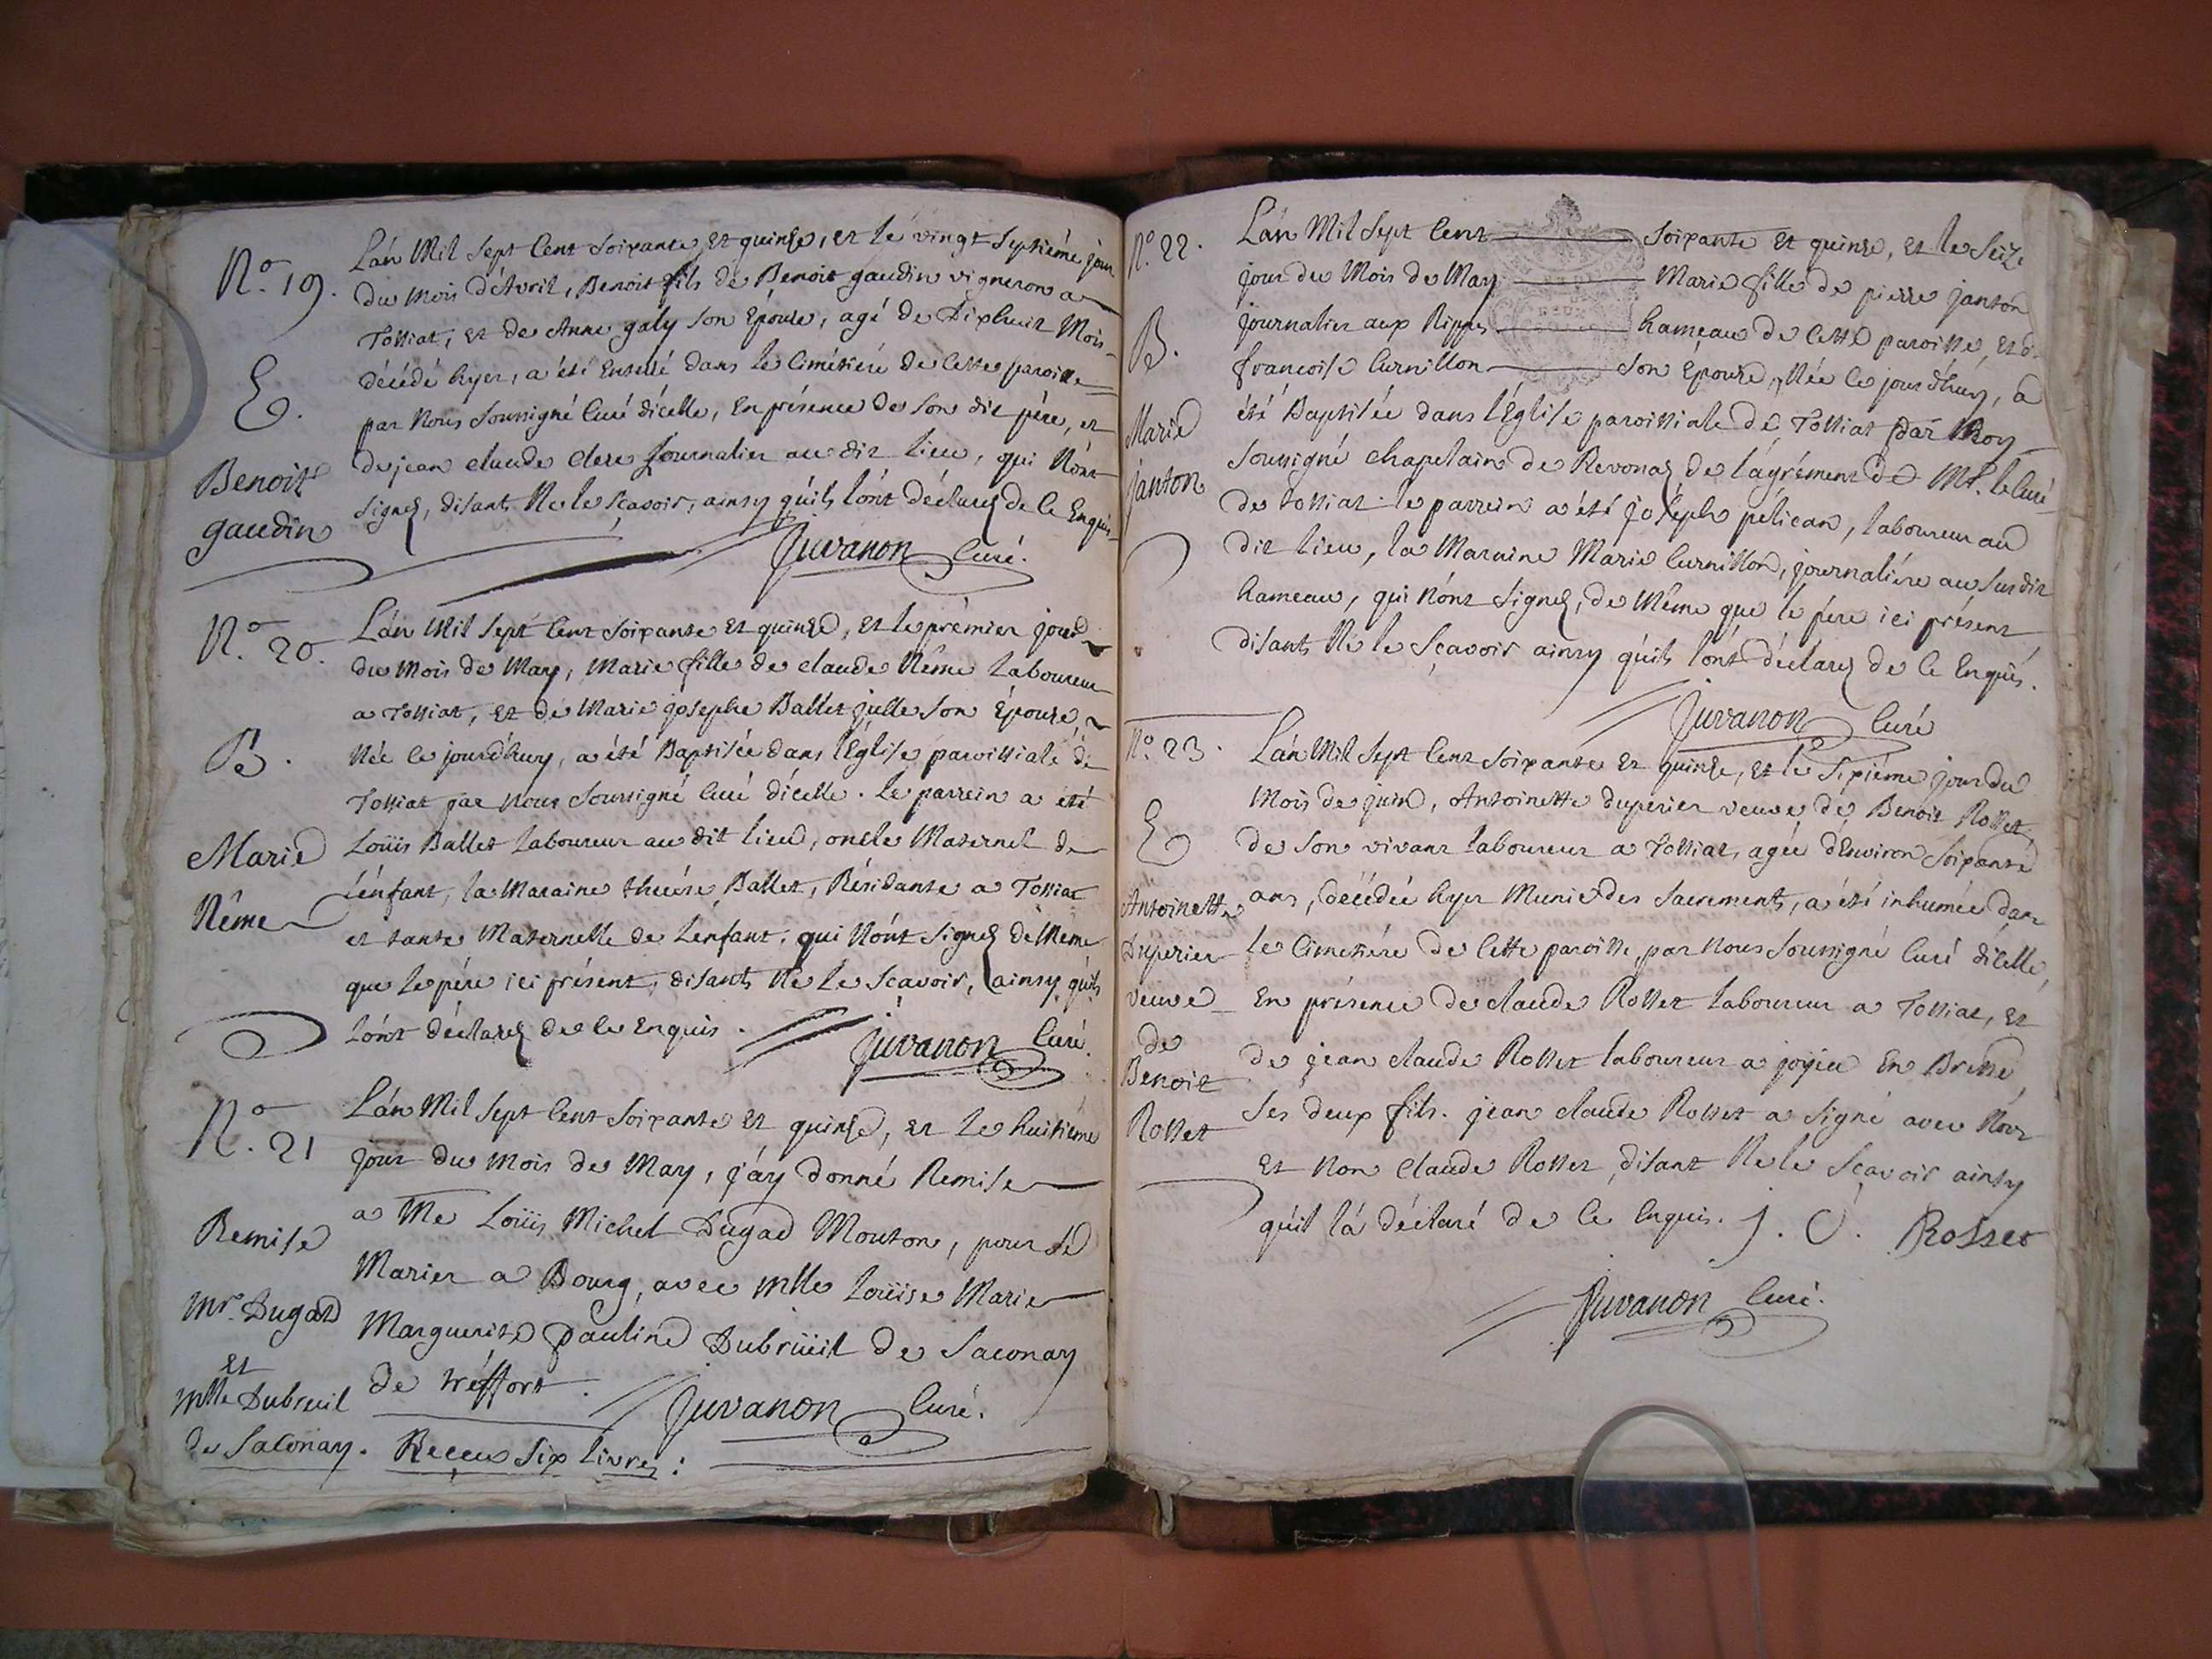 N.º 19.
E.
Benoit
gaudin
L'án Mil sept Cent soixante et quinse, et le vingt septiéme jour
du mois d'Avril, Benoit fils de Benoit gaudin vigneron a
Tossiat, et de Anne galy son Epouse, agé de Dixhuit Mois
décédé hyer, a été Enterré dans le Cimétiere de Cette paroisse
par Nous soussigné Curé d'icelle, En présence de son dit pére, et
de jean claude clerc journalier au dit lieu, qui N'ónt
signés, disants Ne le sçavoir, ainsy qu'ils l'ónt déclarés de ce Enquis
Juvanon Curé.
N.º 20.
B.
Marie
Nême
L'án Mil sept Cent soixante et quinse, et le prémier jour
du mois de May, Marie fille de claude Nême laboureur
a Tossiat, et de Marie josephe Ballet julle son Epouse,
Née ce jourd'huy, a été Baptisée dans l'Eglise paroissiale de
Tossiat par nous soussigné Curé d'icelle. Le parrein a été
Loüis Ballet laboureur au dit lieu, oncle Maternel de
l'énfant, la Maraine therése Ballet, Résidante a Tossiat
et tante Maternelle de l'enfant, qui N'ónt signés de Même
que le pére ici présent, disants Ne le sçavoir, ainsy qu'ils
l'ónt déclarés de ce Enquis.
Juvanon Curé.
N.º 21
Remise
Mr. Dugad
et
Mlle Dubreuil
de Saconay.
L'án Mil sept Cent soixante et quinse, et le huitiéme
jour du mois de May, j'áy donné Remise
a Me Loüis Michel Dugad Mouton, pour se
Marier a Bourg, avec Mlle Loüise Marie
Marguerite pauline Dubrüeil de Saconay
de tréffort.
Juvanon Curé.
Receu six livres:
Nº. 22.
B.
Marie
janton
L'án Mil sept Cent soixante et quinse, et le seize
jour du Mois de May Marie fille de pierre janton
journalier aux Rippes hameau de Cette paroisse, et de
francoise Curnillon son Epouse, Née ce jourd'huy, a
été Baptisée dans l'Eglise paroissiale de Tossiat par Moy
soussigné chapelain de Revonas de l'ágrément de Mr. le Curé
de tossiat. le parrein a été joseph pélican, laboureur au
dit lieu, la Maraine Marie Curnillon, journaliére au susdit
hameau, qui N'ónt signés, de Même que le pére ici présent,
disants Ne le sçavoir ainsy qu'ils l'ónt déclarés de ce Enquis.
Juvanon Curé
Nº. 23.
E
Antoinette
Duperier
veuve
de
Benoit
Rosset
L'án Mil sept Cent soixante et quinse, et le sixiéme jour du
Mois de juin, Antoinette duperier veuve de Benoit Rosset
de son vivant laboureur a Tossiat, agée d'Environ soixante
ans, décédée hyer Munie des sacrements, a été inhumée dans
le Cimetiére de Cette paroisse, par Nous soussigné Curé d'icelle,
En présence de claude Rosset laboureur a Tossiat, et
de jean claude Rosset laboureur a joyeu En Bresse,
ses deux fils. jean claude Rosset a signé avec Nous
et non claude Rosset, disant Ne le sçavoir ainsy
qu'il l'á déclaré de ce Enquis. J. C. Rosset
Juvanon Curé.